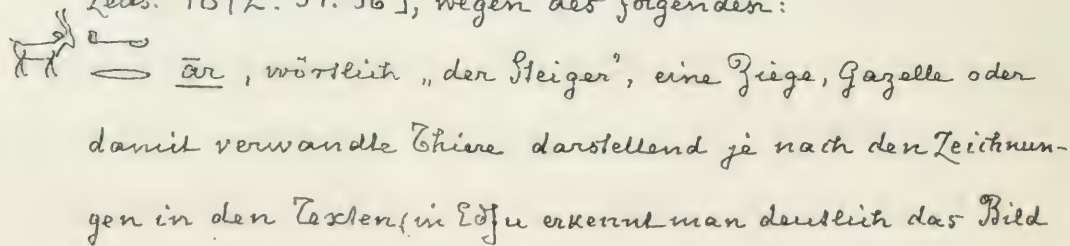 wegen des folgenden:
ār, wörtlich „der Steiger", eine Ziege, Gazelle oder
damit verwandte Thiere darstellend je nach den Zeichnun-
gen in den Texten (in Edfu erkennt man deutlich das Bild